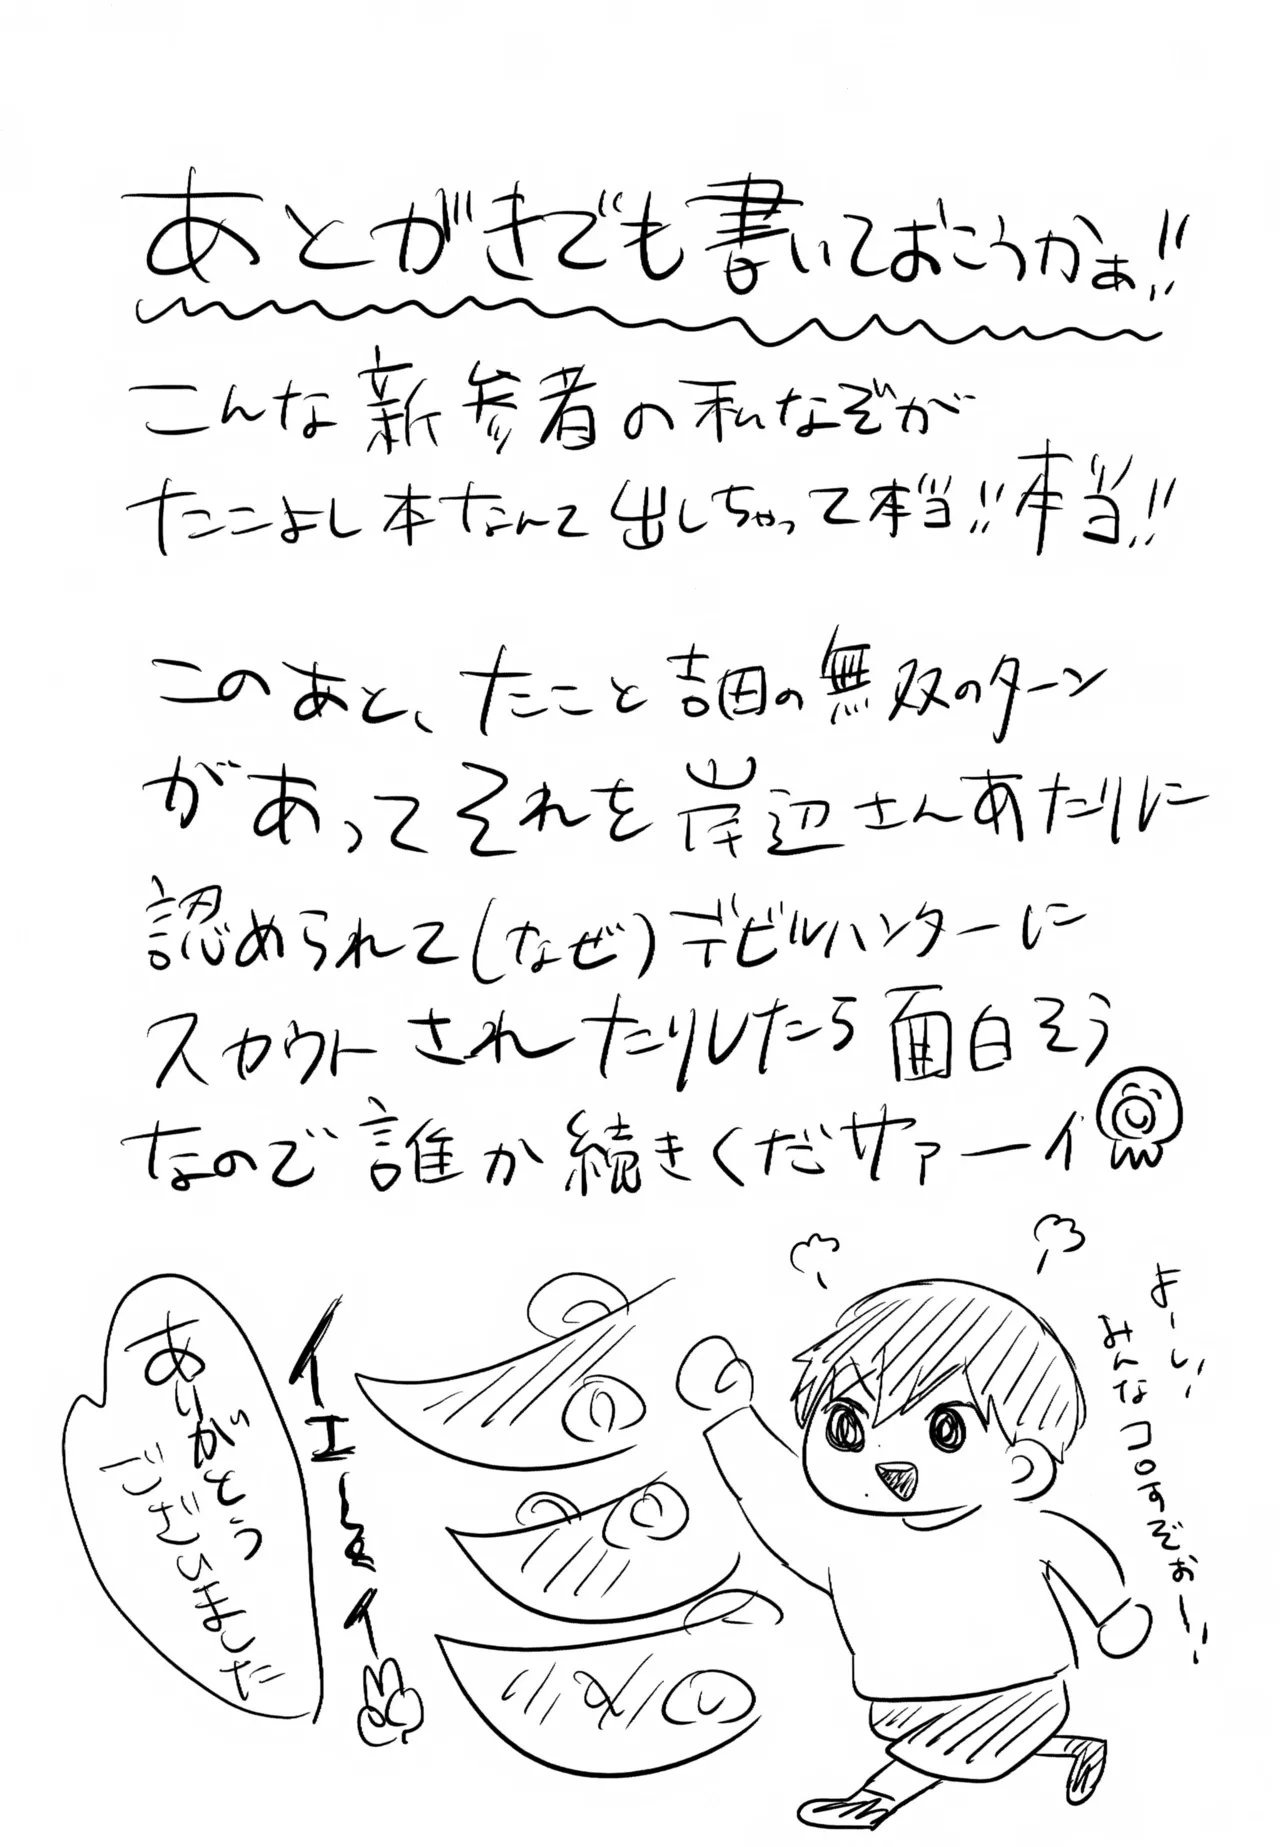 あとがきでも書いておこうかぁ!!
こんな新参者の私なぞが
たこよし本なんて出しちゃって本当!!本当!!
このあと、たこと吉田の無双のターン
があってそれを岸辺さんあたりに
認められて(なぜ)デビルハンターに
スカウトされたりしたら面白そう
なので誰か続きくだサァーイ
よーしい
みんなコロすぞぉー!!
イエーイ
ありがとう
ございました